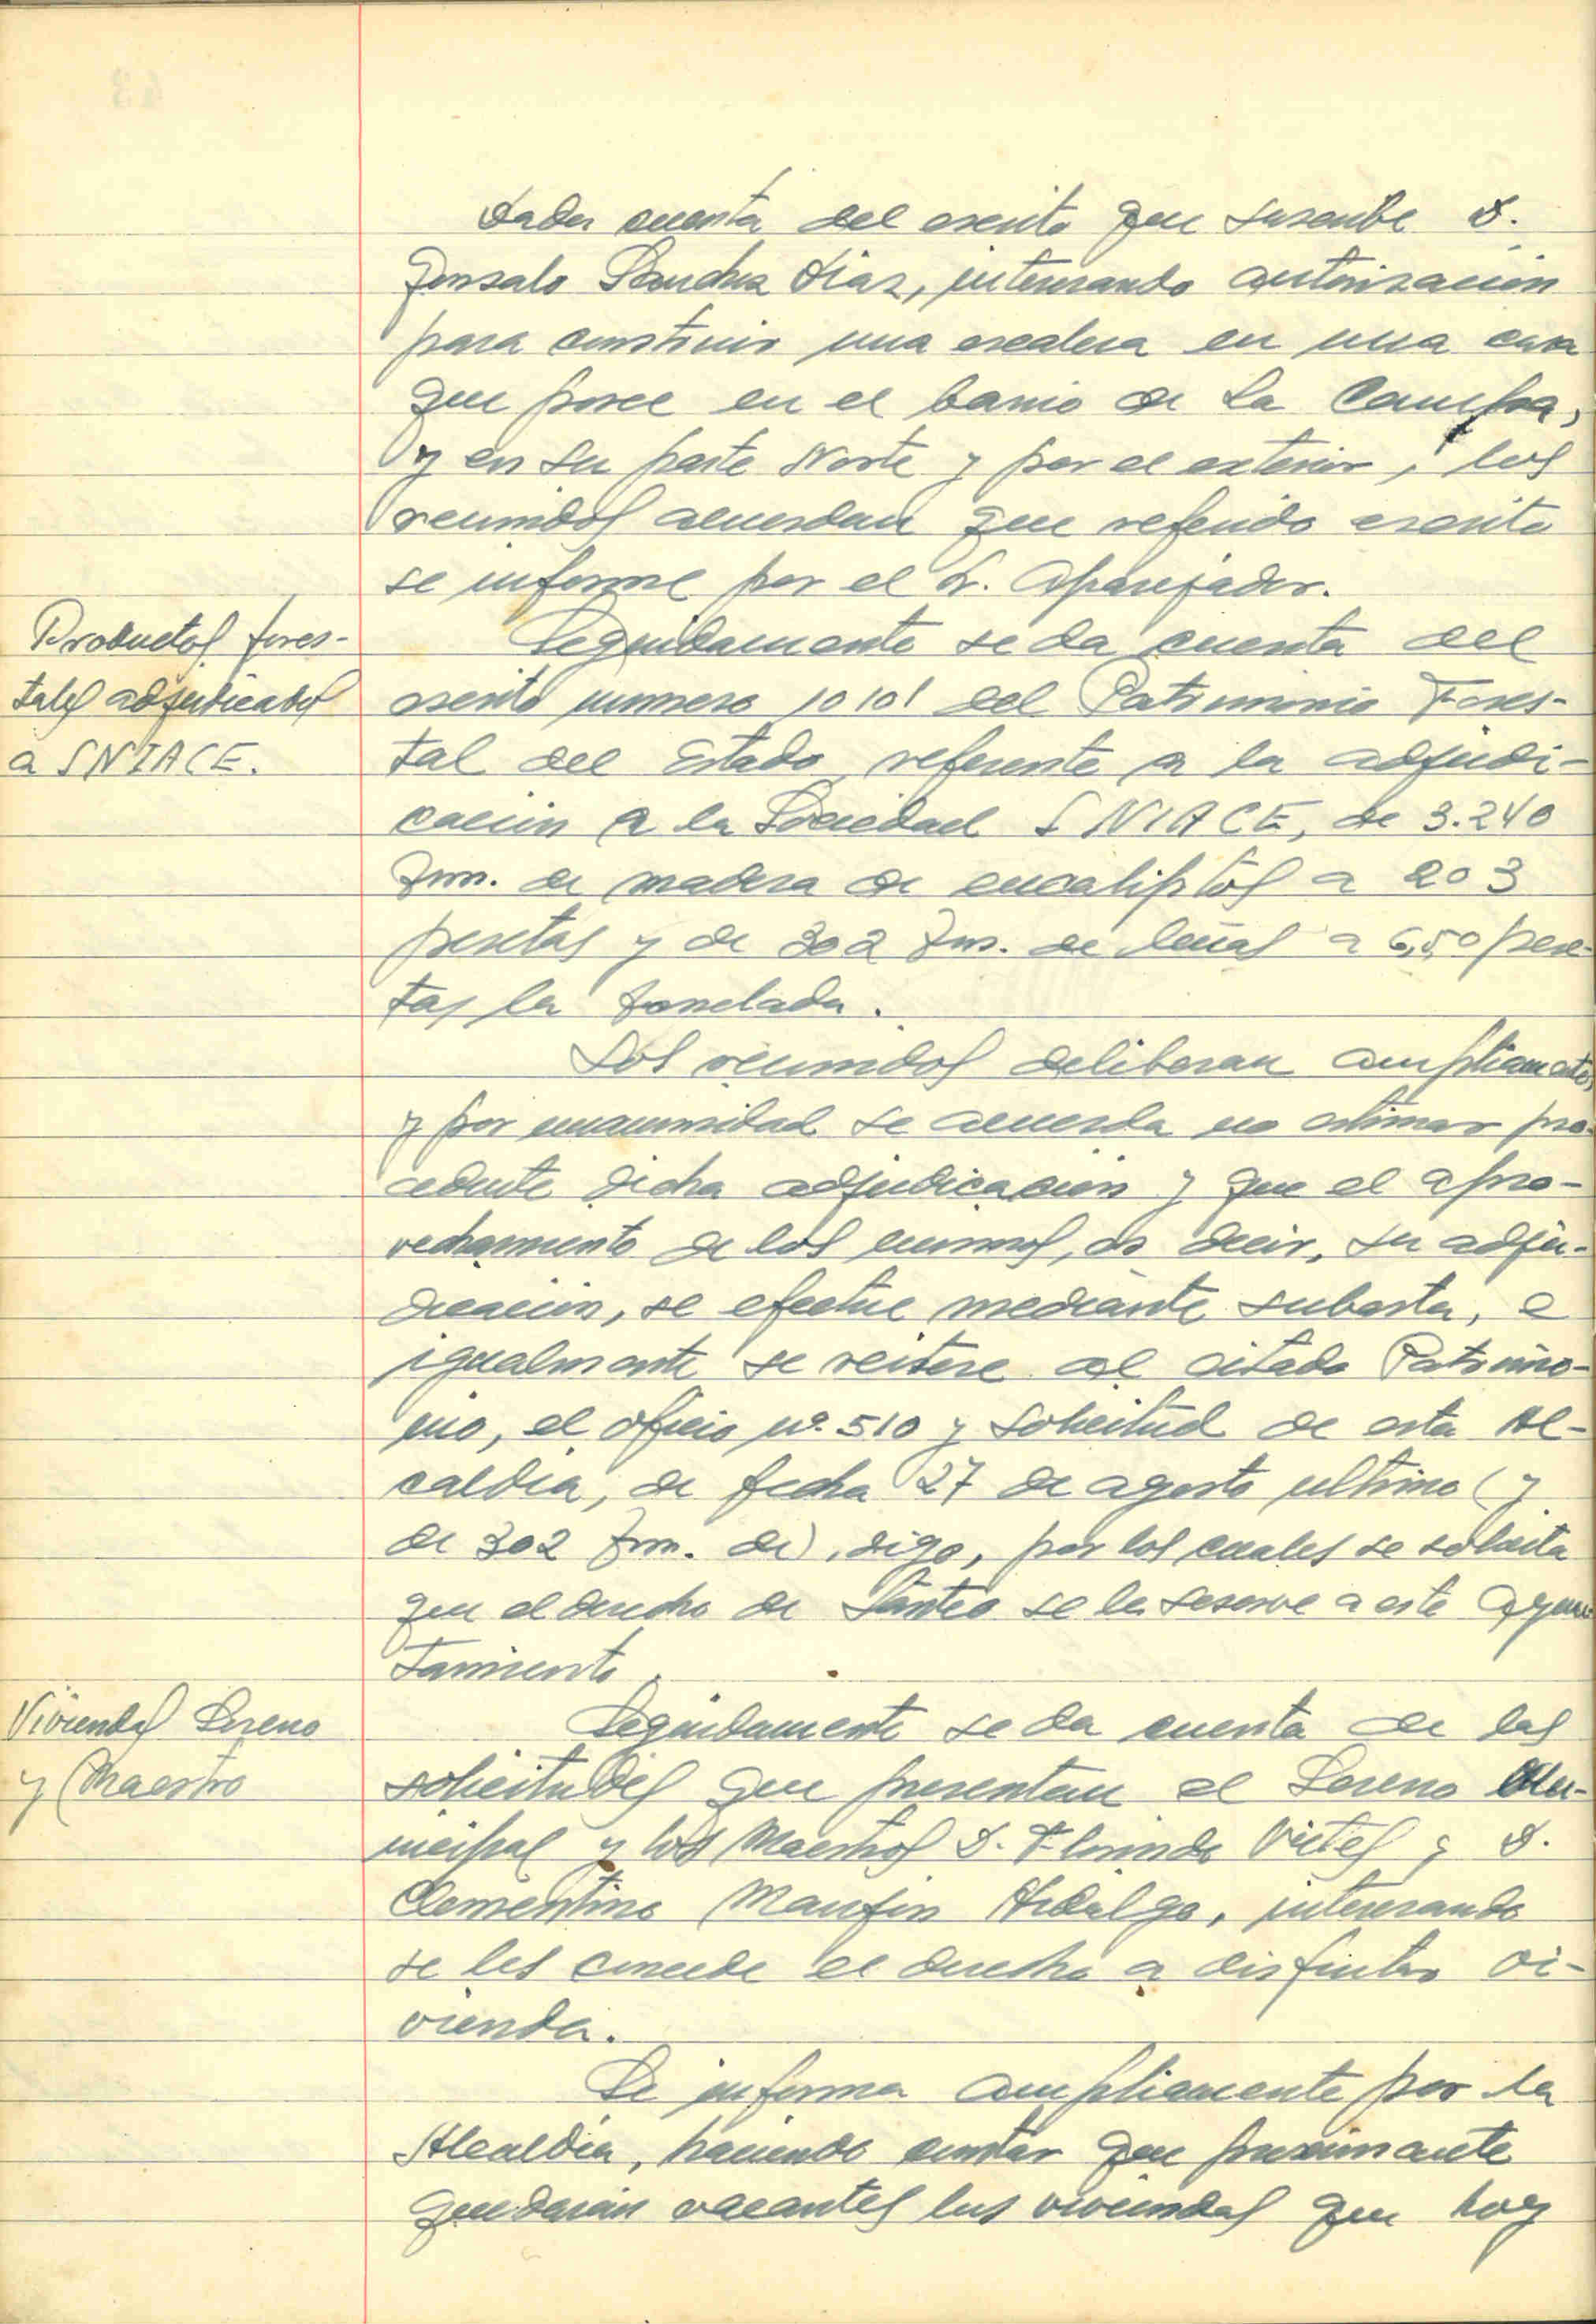 Dada cuenta del escrito que suscribe D.
Gonzalo Sanchez Diaz, interesando autorizacion
para construir una escalera en una casa
que posee en el barrio de La Campa,
y en su parte Norte y por el exterior, los
reunidos acuerdan que referido escrito
se informe por el Sr. Aparejador.
Productos fores-
tales adjudicados
a SNIACE.
Seguidamente se da cuenta del
escrito numero 10101 del Patrimonio Fores-
tal del Estado, referente a la adjudi-
cación a la Sociedad SNIACE, de 3.240
Tm. de madera de eucaliptos a 203
pesetas y de 302 Tms. de leñas a 6,50 pese-
tas la tonelada.
Los reunidos deliberan ampliamente,
y por unanimidad se acuerda no estimar pro-
cedente dicha adjudicación y que el apro-
vechamiento de los mismos, es decir, su adju-
dicación, se efectue mediante subasta, e
igualmente se reitere al citado Patrimo-
nio, el oficio nº. 510 y solicitud de esta Al-
caldia, de fecha 27 de agosto ultimo (y
de 302 Tm. de), digo, por los cuales se solicita
que el derecho de tanteo se le reserve a este Ayun-
tamiento.
Viviendas Sereno
y Maestro
Seguidamente se da cuenta de las
solicitudes que presentan el Sereno Mu-
nicipal y los Maestros D. Florindo y D.
Clementino Hidalgo, interesando
se les concede el derecho a disfrutar vi-
vienda.
Se informa ampliamente por la
Alcaldia, haciendo constar que proximamente
quedarán vacantes las viviendas que hoy